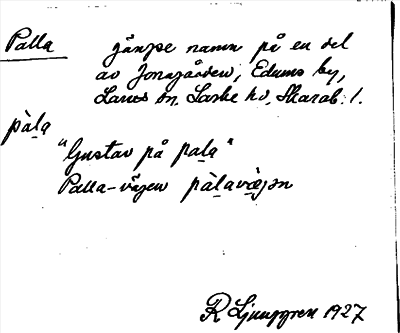 Palla gängse namn på en del
av Jonsgården, Edums by,
Lanes sn. Laske hd. Skarab. l.
pàla
"Gustav på pala"
Palla-vägen pàlavägən
R Ljunggren 1927